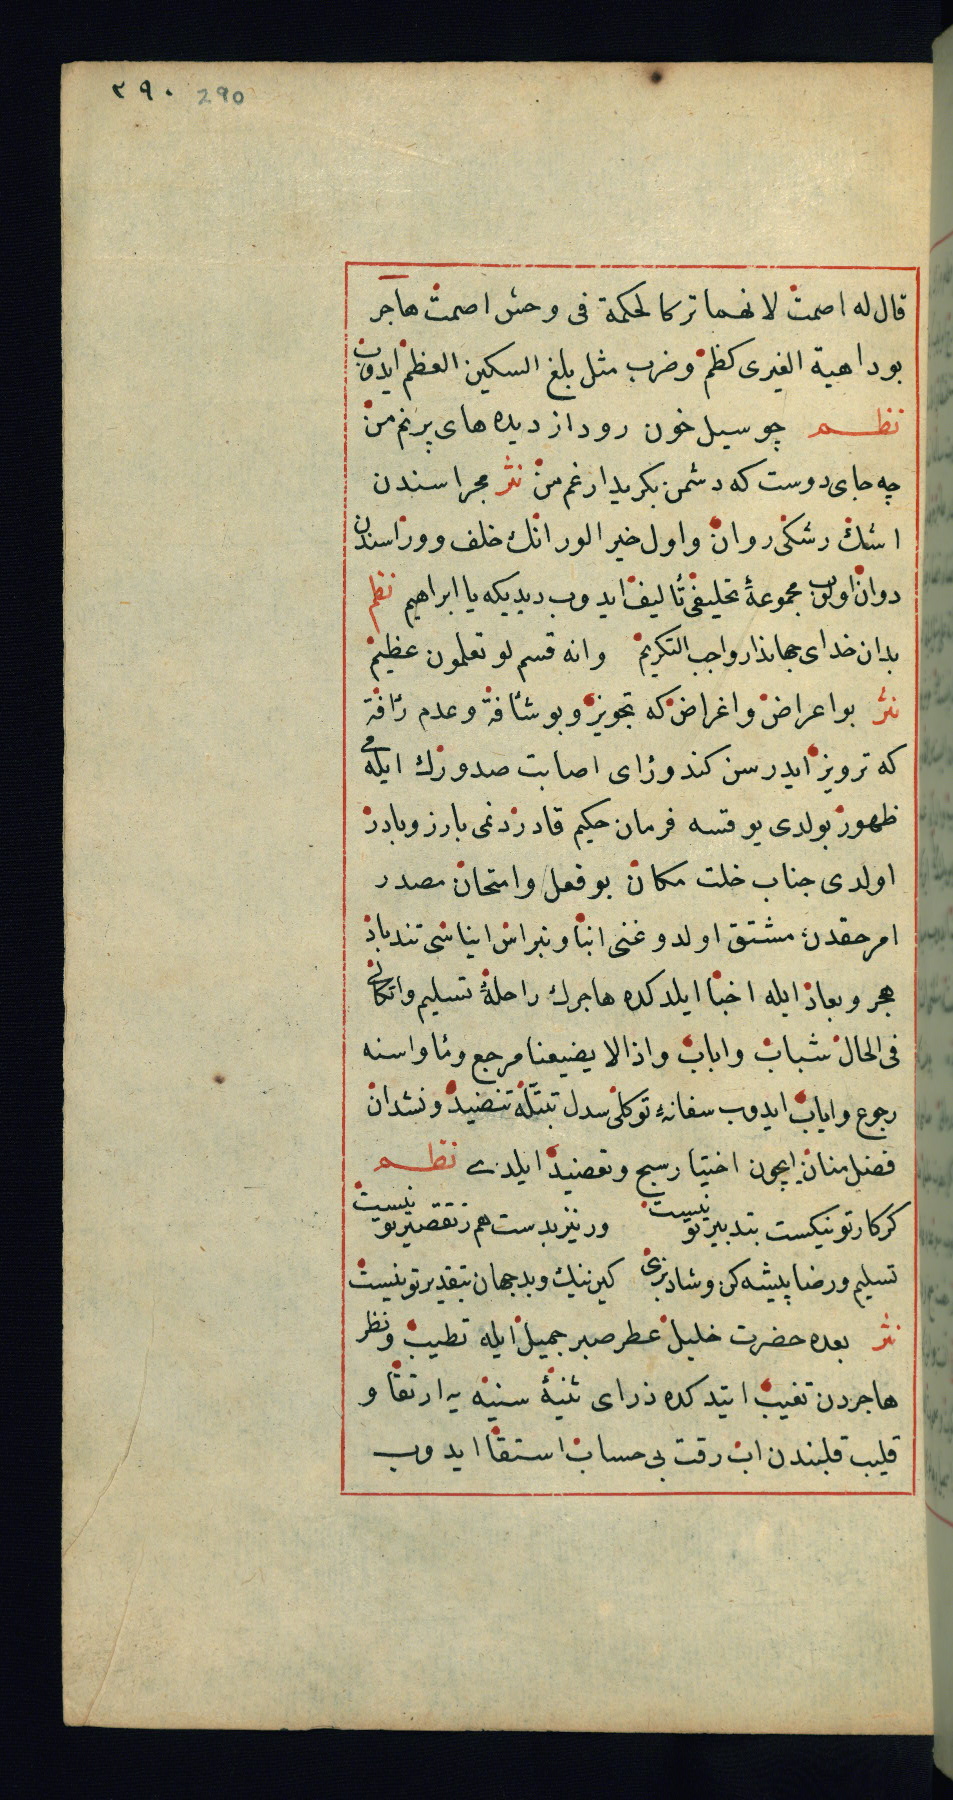 ٢٩٠ 290
قال له اصمت لانهما تركا لحكمة فى وحش اصمت هاجر
بو داهية الغيرى كظم وضرب مثل بلغ السكين العظم ايدوب
نظم چو سيل خون رود از ديده هاى پرنم من
چه جاى دوست كه دشمن بكريد ارغم من نثر مجراسندن
اشك رشكى روان واول خير الورانك خلف ووراسندن
دوان اولوب مجموعۀ تحليفى تأليف ايدوب ديديكه يا ابراهيم نظم
بدان خداى جهاندار واجب التكريم وانه قسم لو تعلمون عظيم
نثر بو اعراض واغراض كه تجويز وبو شأفة وعدم رأفة
كه ترويز ايدرسن كندو رٔاى اصابت صدورك ايله مى
ظهور بولدى يوقسه فرمان حكيم قادردنمى بارز وبادر
اولدى جناب خلت مكان بو فعل وامتحان مصدر
امر حقدن مشتق اولدوغنى انبا ونبراس ايناسى تندباد
هجر وبعاد ايله اخبا ايلدكده هاجرك راحلۀ تسليم واتكالى
فى الحال شباب واباب واذا لا يضيعنا مرجع ومأواسنه
رجوع واياب ايدوب سفانۀ توكلى سدل تبتله تنضيد ونشدان
فضل منان ايچون اختيار سبح وتعضيد ايلدى نظم
كر كار تو نيكست بتدبير تو نيست ور نيز بدست هم ز تقصير تو نيست
تسليم ورضا پيشه كن وشاد بزى كين نيك وبد جهان بتقدير تو نيست
نثر بعده حضرت خليل عطر صبر جميل ايله تطيب ونظر
هاجردن تغيب ايتدكده ذراى ثنيۀ سنيه يه ارتقا و
قليب قلبندن اب رقت بى حساب استقا ايدوب